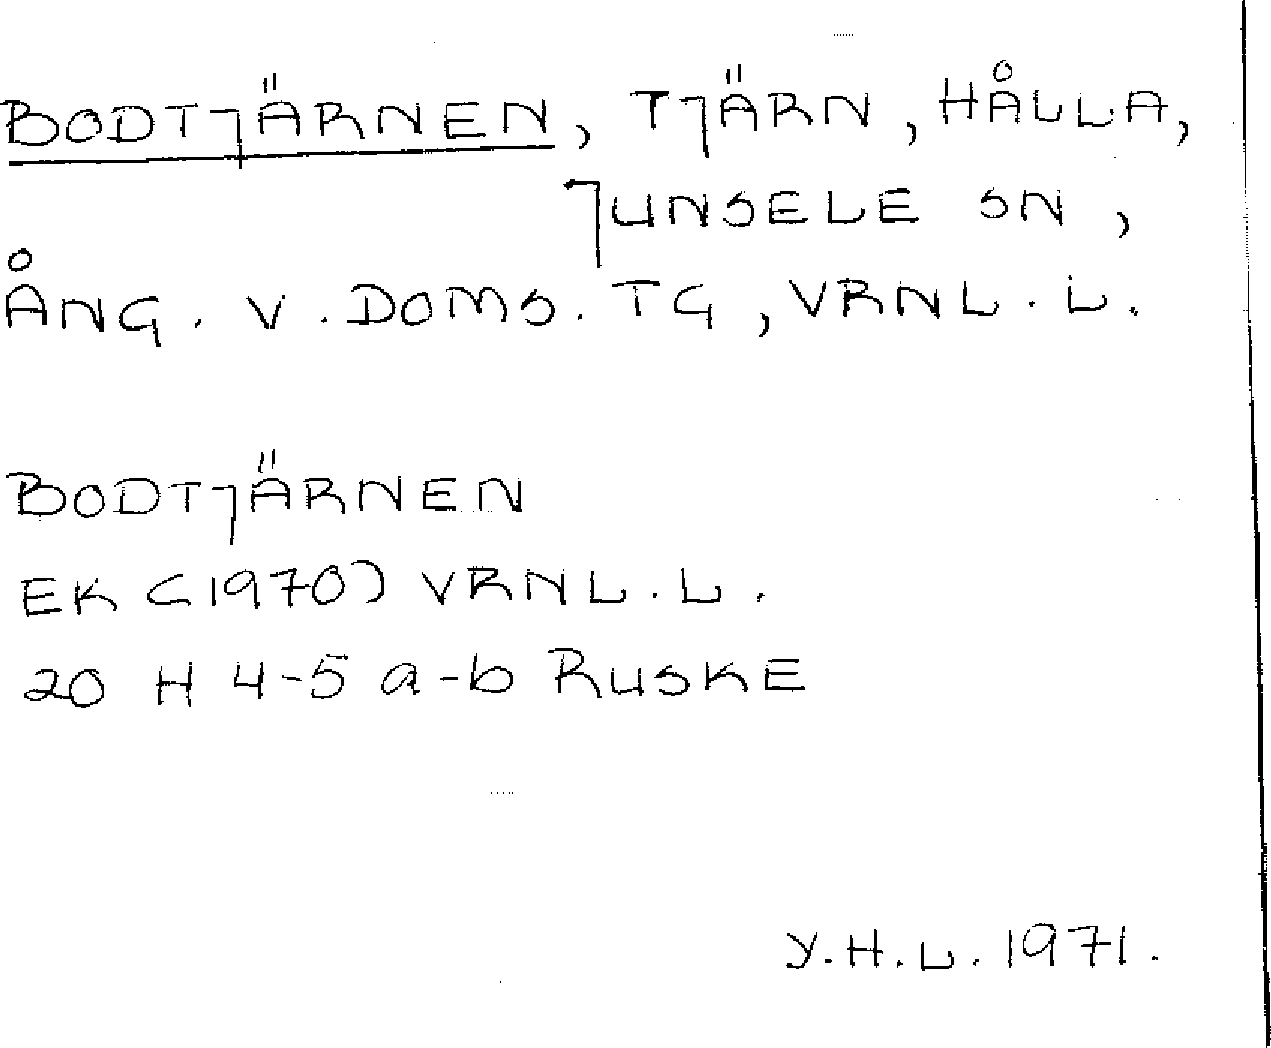 BODTJÄRNEN, TJÄRN, HÅLLA,
JUNSELE SN,
ÅNG. V. DOMS. TG, VRNL. L.
BODTJÄRNEN
EK (1970) VRNL. L.
20 H 4-5 a-b RUSKE
Y.H.L. 1971.